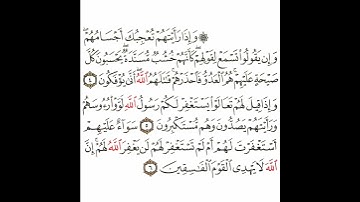 ۞ وَإِذَا رَأَيْتَهُمْ تُعْجِبُكَ أَجْسَامُهُمْ ۖ
وَإِن يَقُولُوا۟ تَسْمَعْ لِقَوْلِهِمْ ۖ كَأَنَّهُمْ خُشُبٌ مُّسَنَّدَةٌ ۖ يَحْسَبُونَ كُلَّ
صَيْحَةٍ عَلَيْهِمْ ۚ هُمُ ٱلْعَدُوُّ فَٱحْذَرْهُمْ ۚ قَـٰتَلَهُمُ ٱللَّهُ ۖ أَنَّىٰ يُؤْفَكُونَ ٤
وَإِذَا قِيلَ لَهُمْ تَعَالَوْا۟ يَسْتَغْفِرْ لَكُمْ رَسُولُ ٱللَّهِ لَوَّوْا۟ رُءُوسَهُمْ
وَرَأَيْتَهُمْ يَصُدُّونَ وَهُم مُّسْتَكْبِرُونَ ٥ سَوَآءٌ عَلَيْهِمْ
أَسْتَغْفَرْتَ لَهُمْ أَمْ لَمْ تَسْتَغْفِرْ لَهُمْ لَن يَغْفِرَ ٱللَّهُ لَهُمْ ۚ إِنَّ
ٱللَّهَ لَا يَهْدِى ٱلْقَوْمَ ٱلْفَـٰسِقِينَ ٦